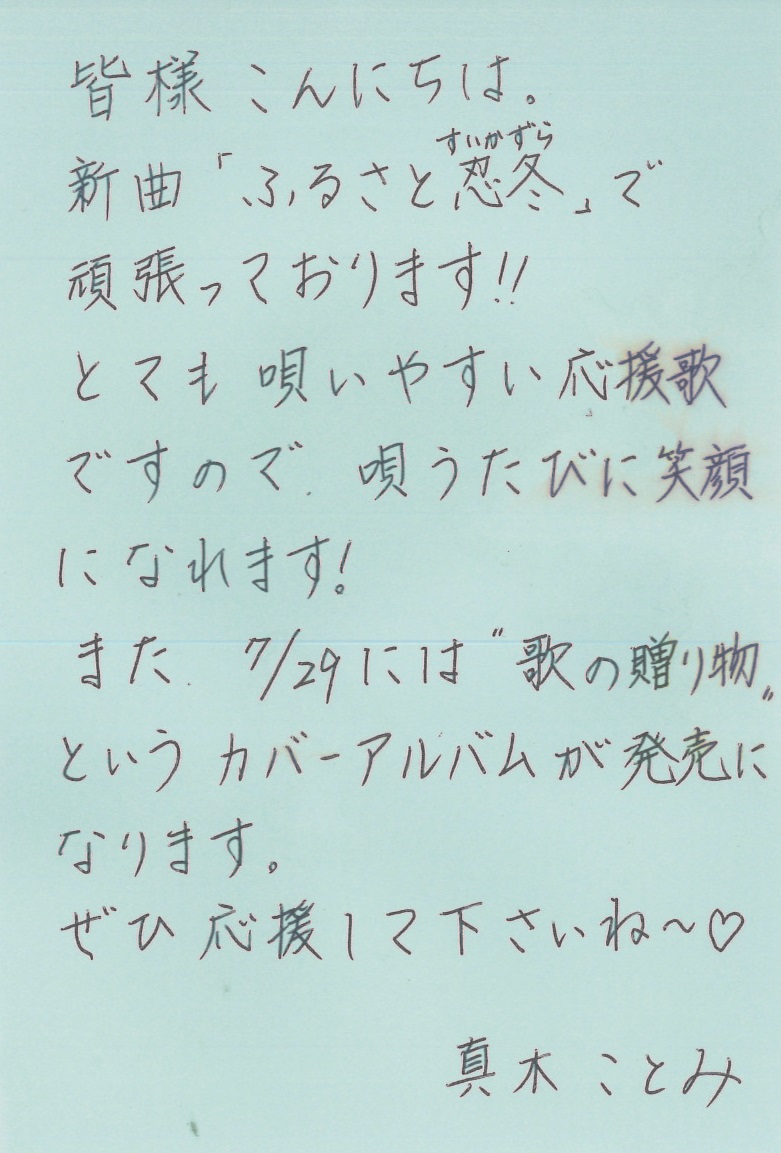 皆様 こんにちは。
すいかずら
新曲「ふるさと忍冬」で
頑張っております!!
とても 唄いやすい 応援歌
ですので、唄うたびに 笑顔
になれます!
また、7/29には〝歌の贈り物〟
という カバーアルバムが 発売に
なります。
ぜひ 応援して 下さいね～♡
真木 ことみ